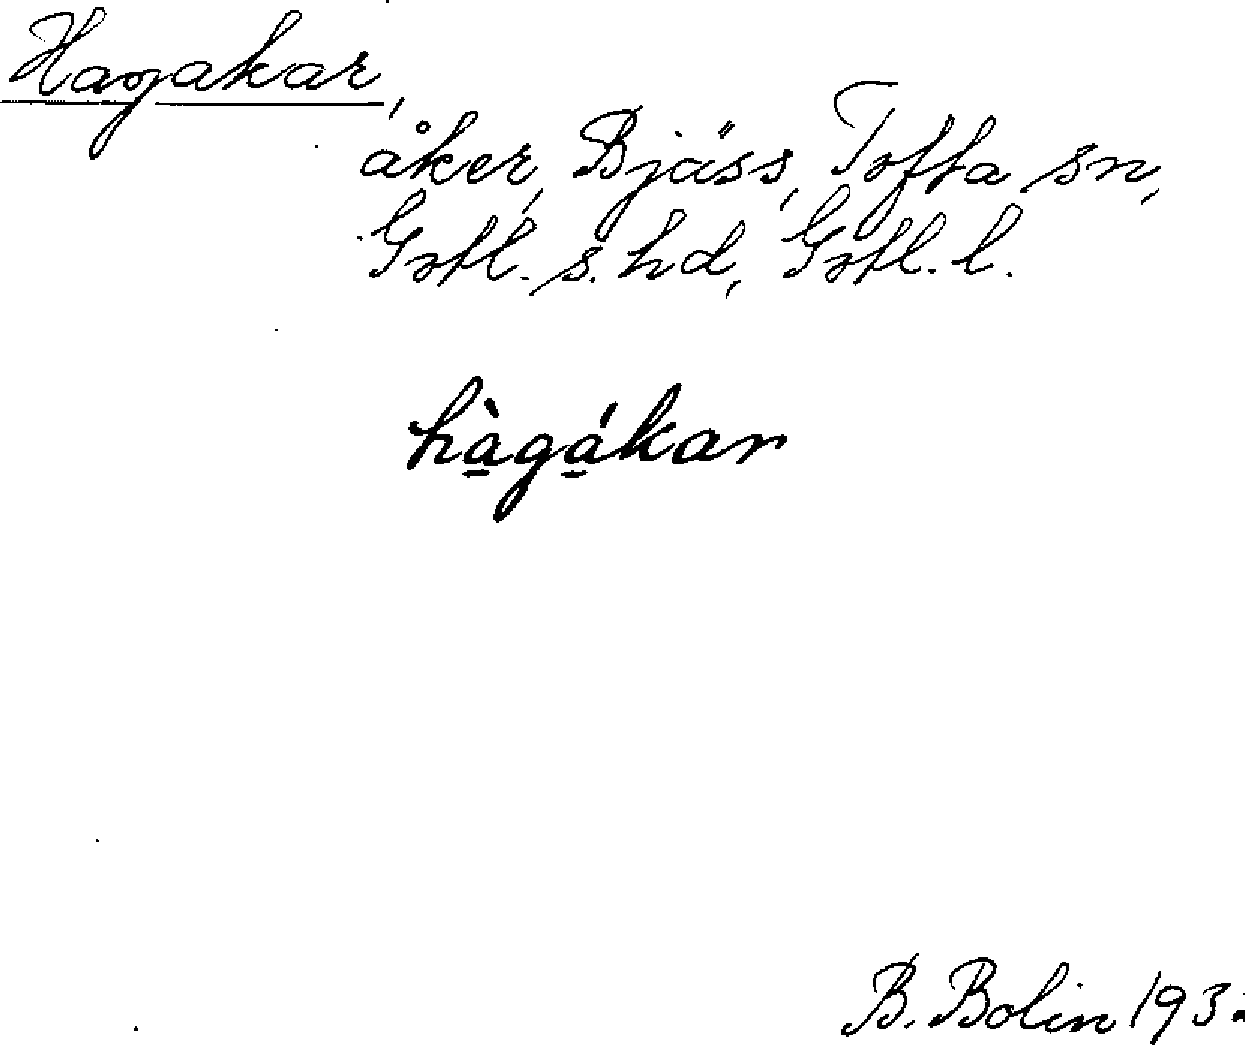 Hagakar,
åker, Bjäss, Tofta sn,
Gotl. s. hd, Gotl. l.
hàgákar
B. Bolin